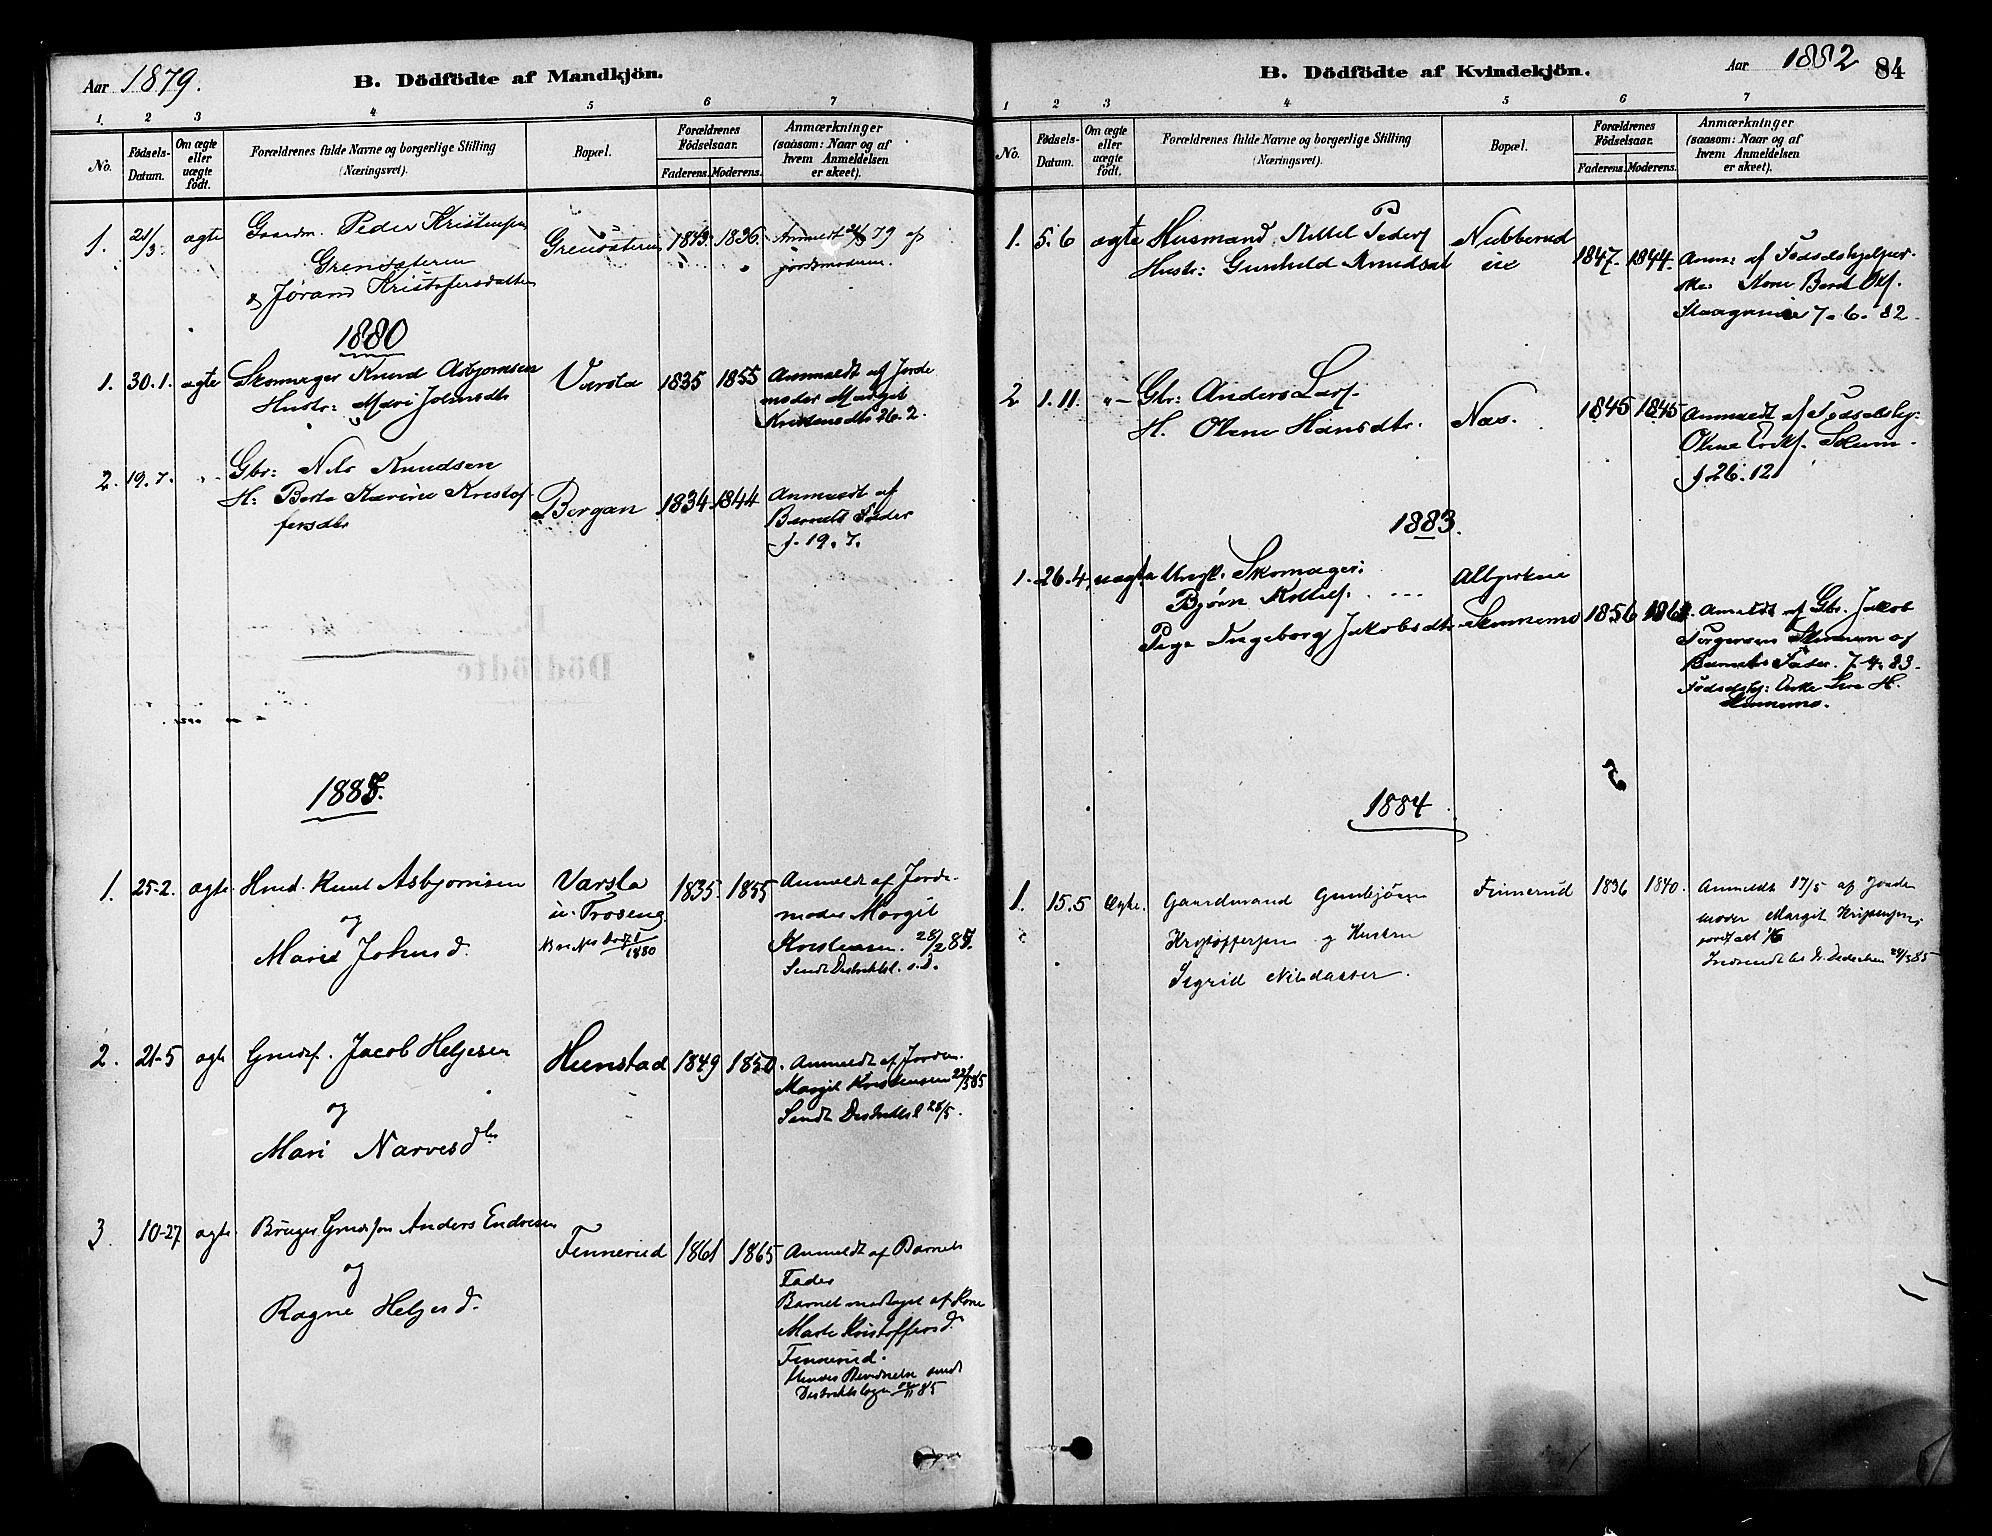 Aar 1879.
B. Dödfödte af Mandkjön.
1. 2 3 4 5 6 7
No.
Födsels-
Datum.
Om ægte
eller
uægte
födt.
Forældrenes fulde Navne og borgerlige Stilling
(Næringsvei).
Bopæl.
Forældrenes
Födselsaar.
Faderens. Moderens.
Anmærkninger
(saasom: Naar og af
hvem Anmeldelsen
er skeet).
1. 21/3 ægte Gaardm. Peder Kristensen
Grensäteren 1836
& Jøran Kristofersdatter
Anmeldt 79 af
jordemoderen.
1880
1. 30.1. ægte Skomager Knud Asbjørnsen
Hustr: Mari Johnsdtr
Varsla 1835 1855
Anmældt af Jorde
moder Margit
Kristensdtr 26.2.
2. 19.7. Gbr: Nils Knudsen
H: Berte Karine Kristof
fersdtr
Bergan 1834 1844
Anmældt af
Barnets Fader
d. 19.7.
1885.
1. 25-2. ægte Knud Asbjørnsen
og
Mari Johnsd.
Varsla
u. Troseng
1835. 1855
Anmeldt af Jorde-
moder Margit
Kristensen. 28/2 85.
Sendt Distriktsl. s.d.
2. 21-5 ægte Jacob Helgesen
og
Mari Narvesdtr
Hunstad 1849 1850
Anmeldt af Jordm.
Margit Kristensen 22/5 85
Sendt Distriktsl 28/5.
3. 10-27 ægte Anders Endresen
og
Ragne Helgesd.
Finnerud 1861 1865
Anmeldt af Barnets
Fader
Barnet modtaget af Kone
Marte Kristoffersd.
Finnerud.
sendt
Distriktslægen 85
Aar 1882
84
B. Dödfödte af Kvindekjön.
1 2 3 4 5 6 7
No.
Födsels-
Datum.
Om ægte
eller
uægte
födt.
Forældrenes fulde Navne og borgerlige Stilling
(Næringsvei).
Bopæl.
Forældrenes
Födselsaar.
Faderens. Moderens.
Anmærkninger
(saasom: Naar og af
hvem Anmeldelsen
er skeet).
1. 5.6 ægte Husmand Kittil Peders
Hustr: Gunhild Knudsdt
Nubberud
1847. 1844.
Anm: af Fødselshjelper-
ske: Kone
7.6.82.
2 1.11. Gbr: Anders Lars.
H. Olene Hansdtr.
Næs. 1845 1845
Anmældt af Fødselshj:
Olene
d 26.12
1883.
1. 26.4. uægte Skomager:
Bjørn Kittils.
Pige Ingeborg Jakobsdtr
Albjerkeie
Skinnemo 1856
Anmeldt af Gbr. Jakob
Torgersen
Barnets Fader. 7.4.83.
Fødselshj:
1884
1. 15.5 Ægte. Gaardmand Gunbjörn
Kristoffersen og Hustru
Sigrid Nilsdatter.
Finnerud 1836 1840.
Anmeldt 17/5 af Jorde
moder Margit Kristensen,
Indsendt